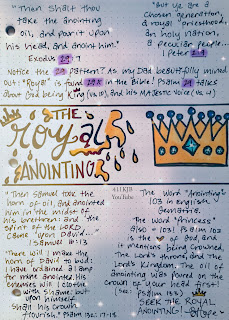 "Then shalt thou
take the anointing
oil, and pour it upon
his head, and anoint him."
Exodus 29:7
"But ye are a
chosen generation,
a royal priesthood,
an holy nation,
a peculiar people...
1 Peter 2:9
Notice the 29 pattern? As my Dad beautifully mined
out: "Royal" is found 29 x in the Bible! Psalm 29 talks
about God being King (vs. 10), and His MAJESTIC Voice (vs. 4)
THE
Royal
ANOINTING
"Then Samuel took the
horn of oil, and anointed
him in the midst of
his brethren: and the
Spirit of the LORD
came upon David..."
1 Samuel 16:13
"There will I make the
horn of David to bud:
I have ordained a lamp
for mine anointed. His
enemies will I clothe
with shame: but
upon himself
shall his crown
flourish." Psalm 132:17-18
411KJB
YouTube
The Word "Anointing"
103 in English
Gematria.
The Word "Princess"
also = 103! Psalm 103
is the ♥ of God, and
it mentions being crowned,
The Lord's throne, and the
Lord's Kingdom. The oil of
anointing was poured on the
crown of your head first!
(See: Psalm 133)
SEEK THE ROYAL
ANOINTING!